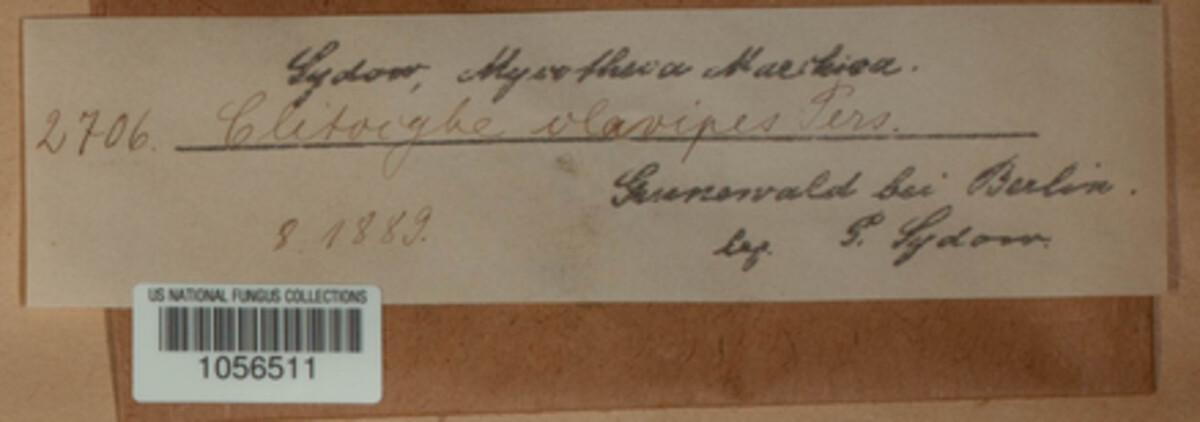 Sydow, Mycotheca Marchica.
2706. Clitocybe clavipes Pers.
Grunewald bei Berlin.
8. 1889.
leg. P. Sydow.
US NATIONAL FUNGUS COLLECTIONS
1056511